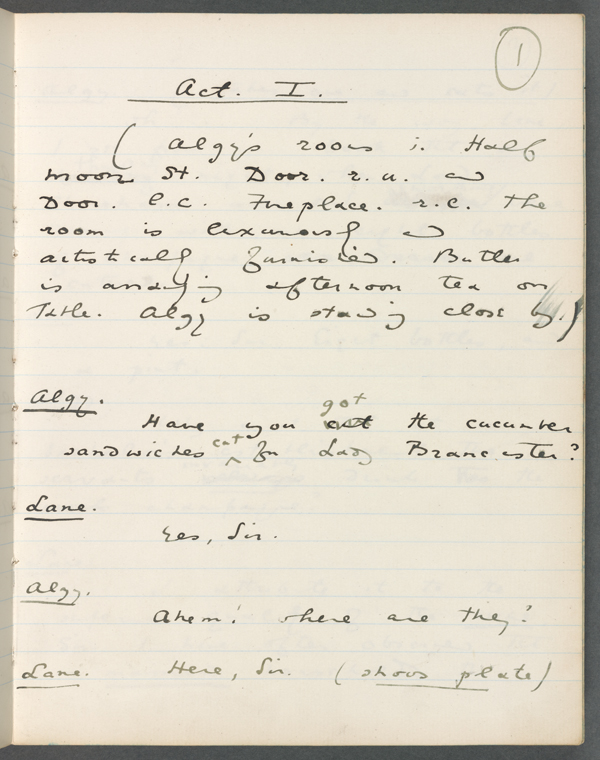 1
Act. I.
( Algy's rooms in Half
moon St. Door. r. u. and
Door. l. c. Fireplace. r. c. The
room is luxuriously and
artistically furnished. Butler
is arranging afternoon tea on
Table. Algy is standing close by.)
Algy.
got
Have you cut the cucumber
sandwiches cut for Lady Brancaster?
Lane.
Yes, Sir.
Algy.
Ahem! where are they?
Lane. Here, Sir. (shows plate)